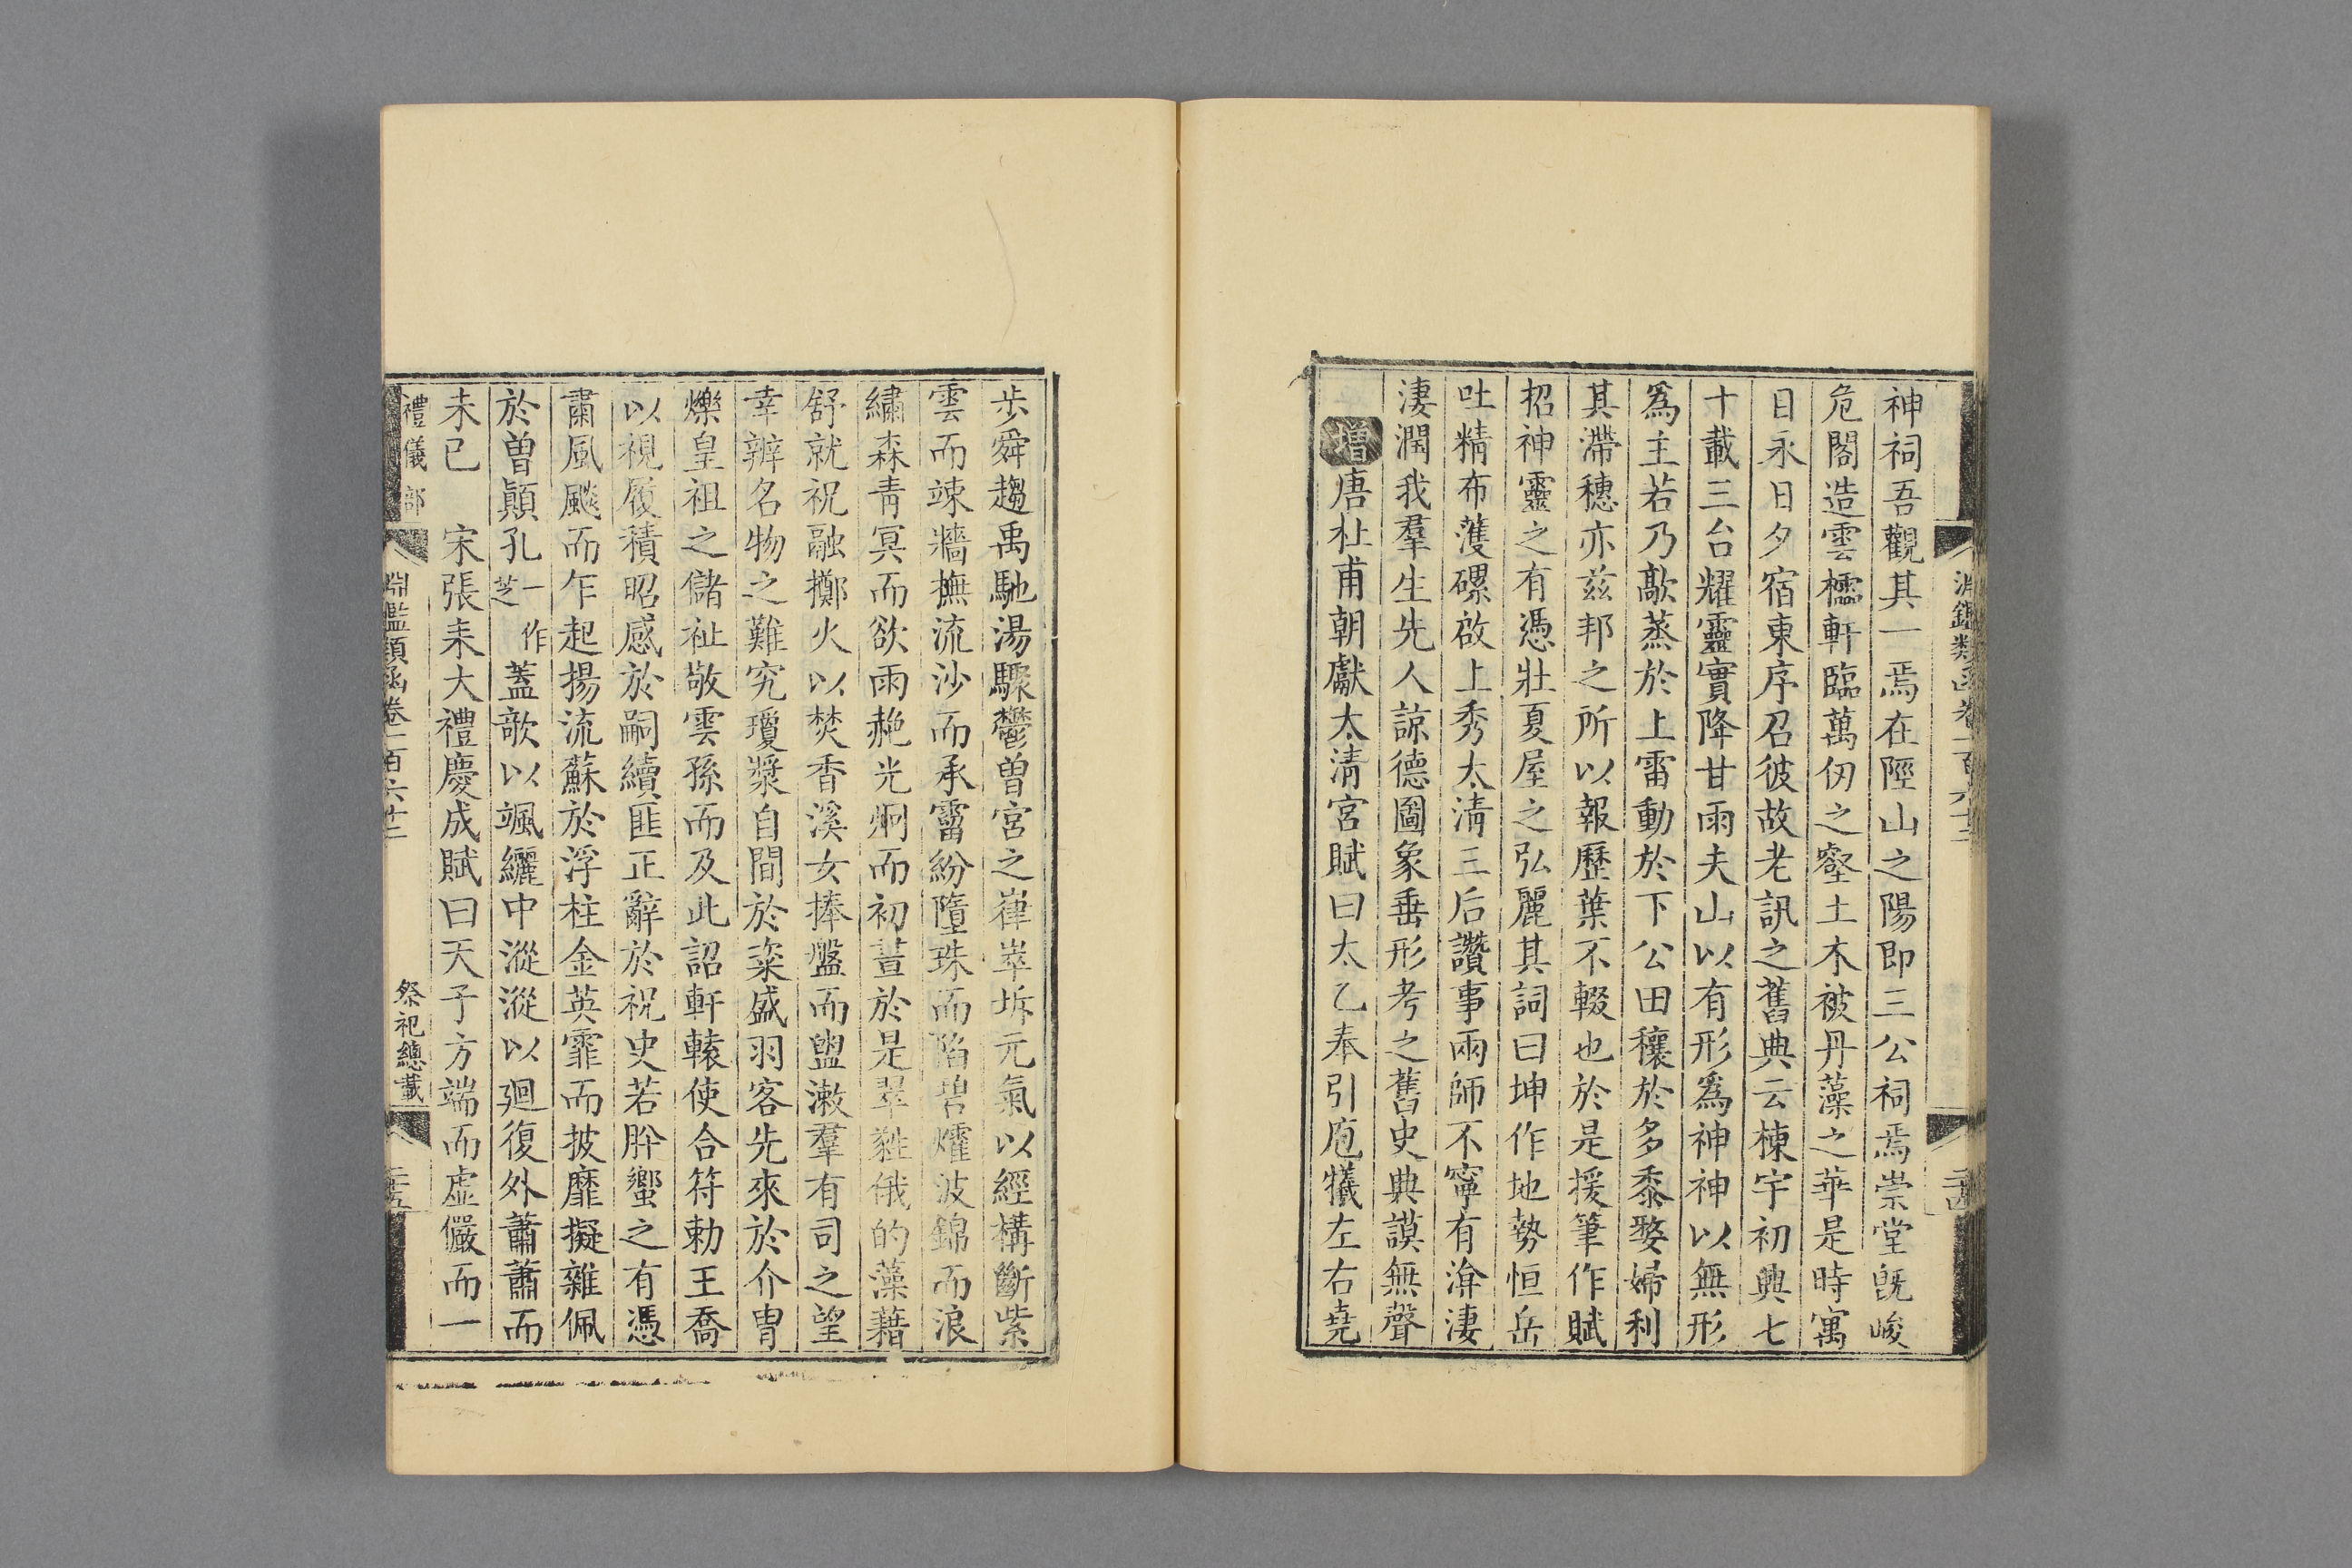 神祠吾觀其一焉在陘山之陽即三公祠焉崇堂旣峻
危閣造雲櫺軒臨萬仞之壑土木被丹藻之華是時寓
日永日夕宿東序召彼故老訊之舊典云棟宇初興七
十載三台耀靈實降甘雨夫山以有形爲神神以無形
爲主若乃歊蒸於上雷動於下公田穰於多黍婺婦利
其滯穗亦茲邦之所以報歷葉不輟也於是援筆作賦
招神靈之有憑壯夏屋之弘麗其詞曰坤作地勢恒岳
吐精布濩磥啟上秀太淸三后讚事兩師不寧有渰淒
淒潤我羣生先人諒德圖象垂形考之舊史典謨無聲
增唐杜甫朝獻太淸宮賦曰太乙奉引庖犧左右堯
步舜趨禹馳湯驟鬱曾宮之嵂崒坼元氣以經構斷紫
雲而竦牆撫流沙而承霤紛墮珠而陷碧爠波錦而浪
繡森青冥而欲雨赩光炯而初晝於是翠蕤俄的藻藉
舒就祝融擲火以焚香溪女捧盤而盥漱羣有司之望
幸辨名物之難究瓊漿自間於粢盛羽客先來於介冑
爍皇祖之儲祉敬雲孫而及此詔軒轅使合符勅王喬
以視履積昭感於嗣續匪正辭於祝史若肸蠁之有憑
肅風飈而乍起揚流蘇於浮柱金英霏而披靡擬雜佩
於曾巔孔一作芝蓋欹以颯纚中漎漎以廻復外蕭蕭而
未已　宋張耒大禮慶成賦曰天子方端而虛儼而一
禮儀部　淵鑑類函卷二百六十二　祭祀總載　二十五